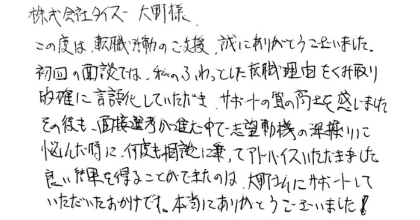 株式会社タイズ 大町様
この度は、転職活動のご支援、誠にありがとうございました。
初回の面談では、私のふわっとした転職理由をくみ取り
的確に言語化していただき、サポートの質の高さを感じました
その後も、面接選考が進む中で志望動機の深掘りに
悩んだ時に、何度も相談に乗ってアドバイスいただきました
良い結果を得ることができたのは、大町さんにサポートして
いただいたおかげです。本当にありがとうございました!